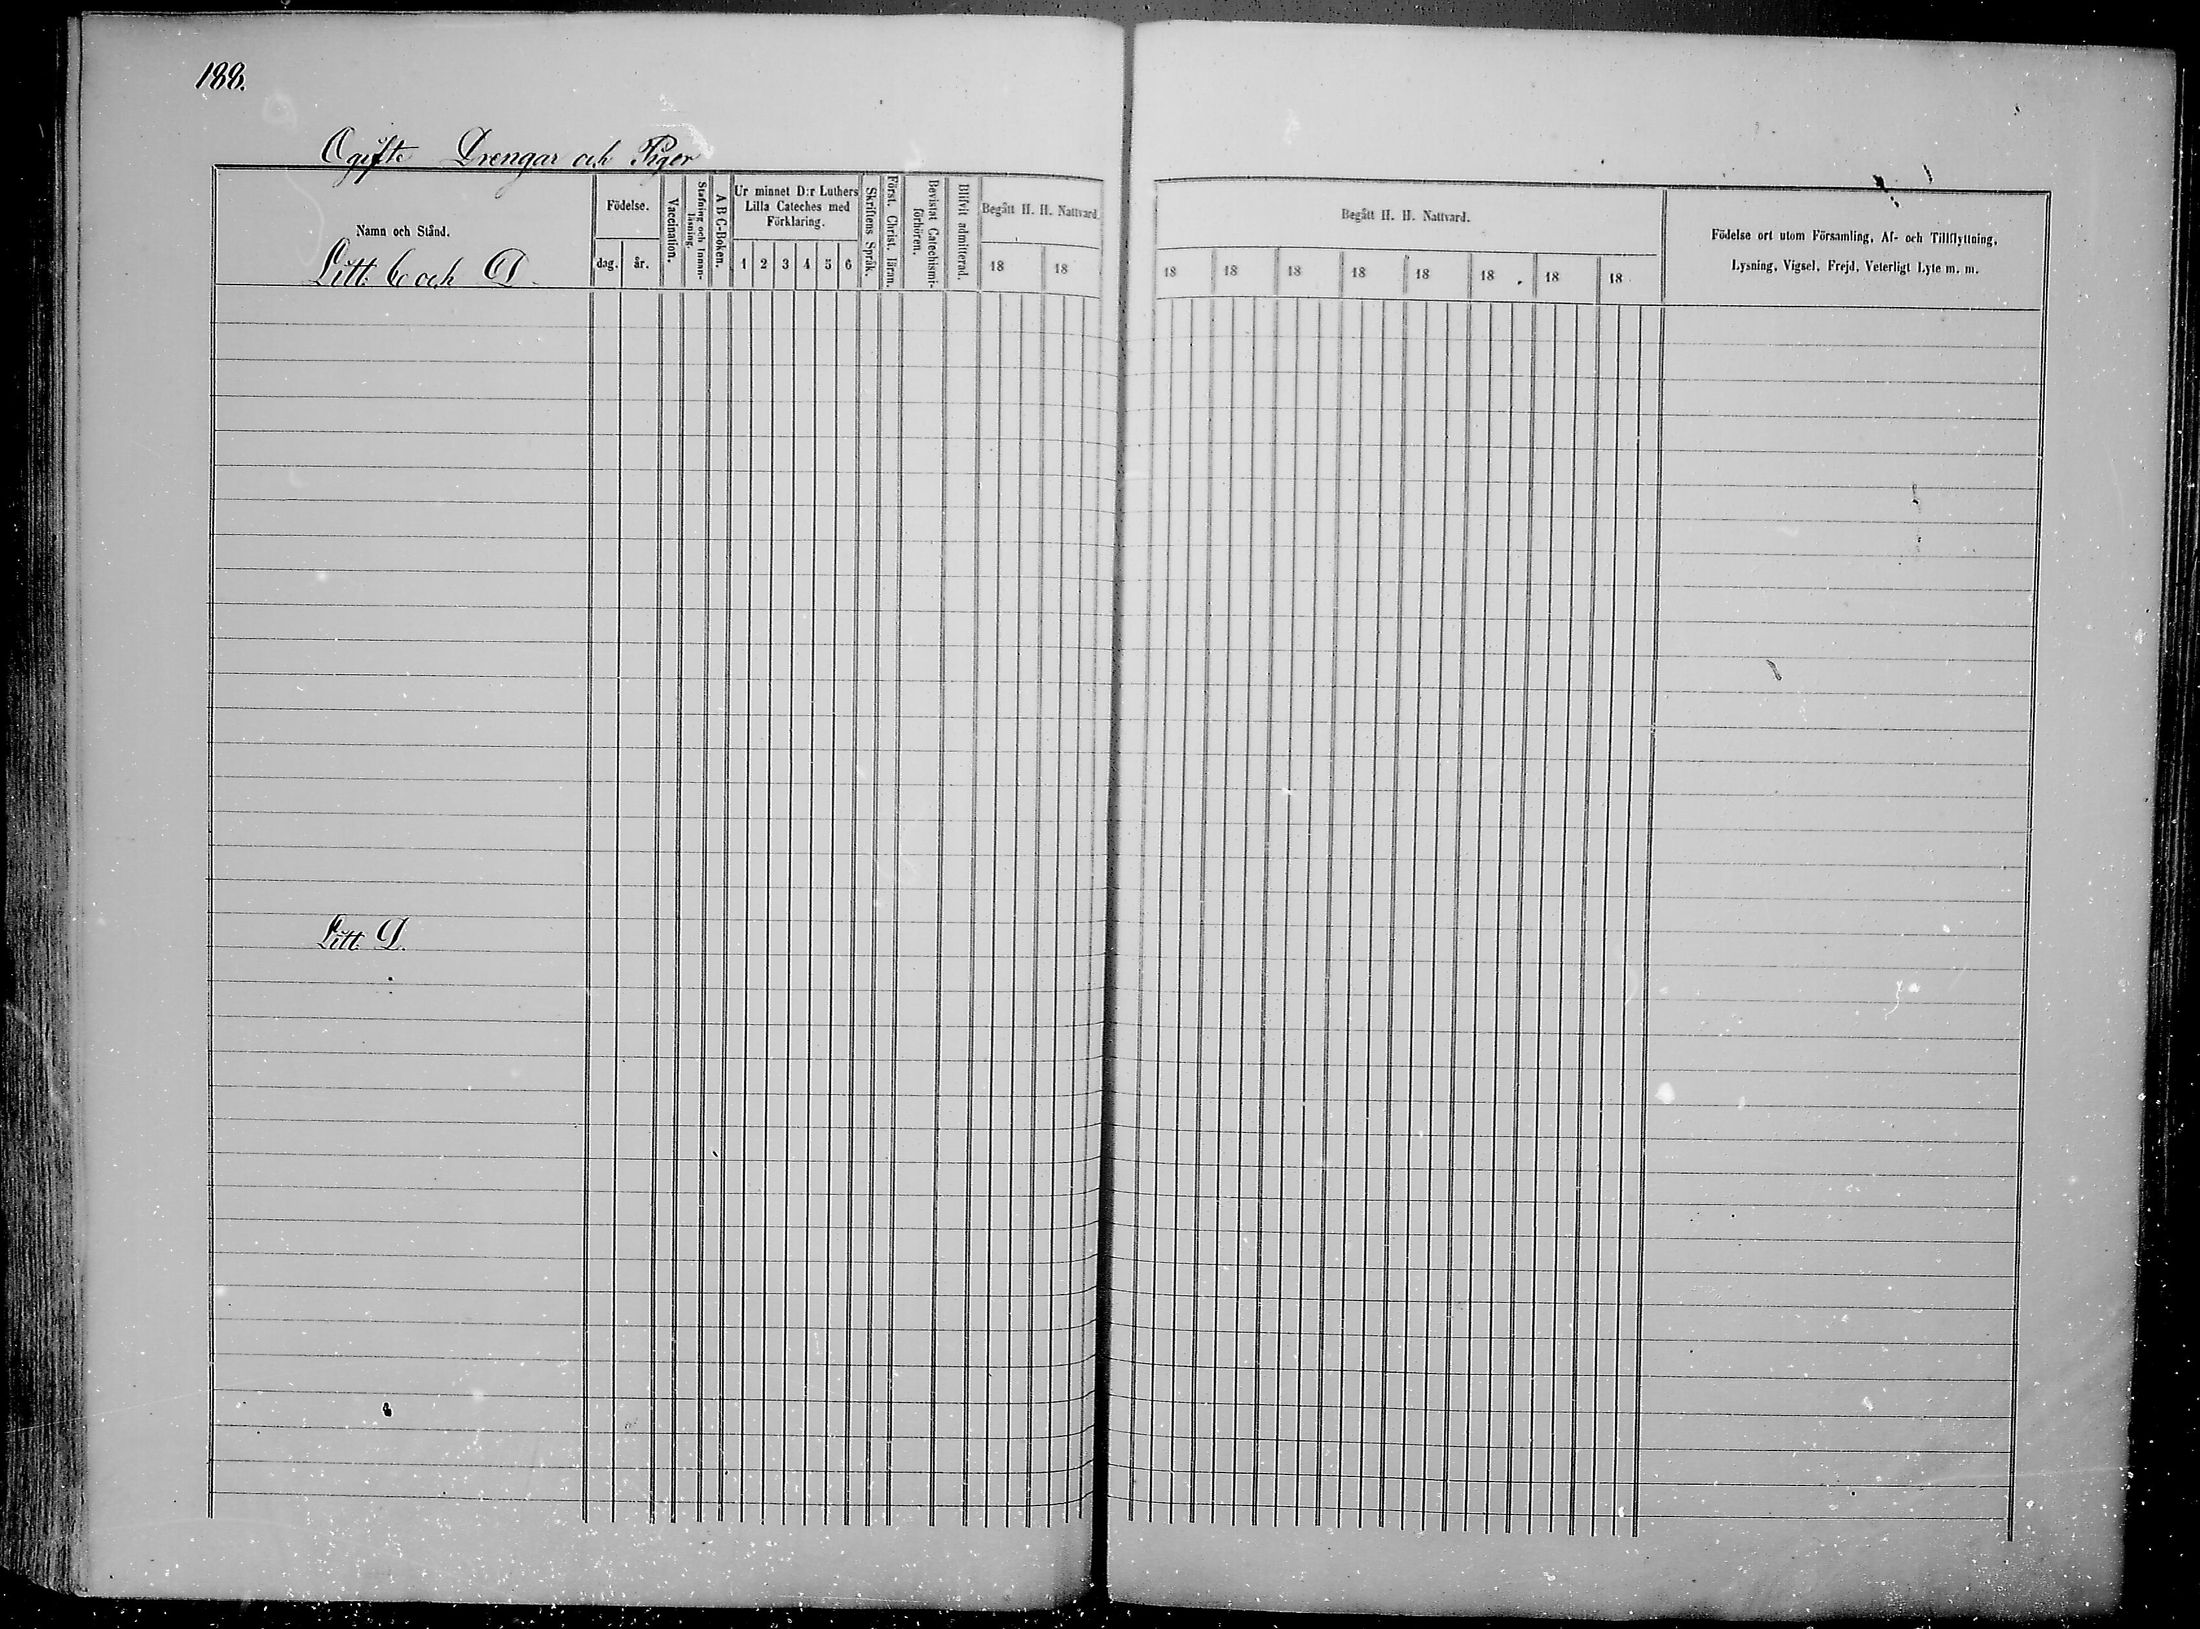 188.
Ogifte Drengar och Pigor
Namn och Stånd.
Födelse.
dag. år.
Vaccination.
Stafning och Innan-
läsning.
A B C-Boken.
Ur minnet D:r Luthers
Lilla Cateches med
Förklaring.
1 2 3 4 5 6
Skriftens Språk.
Först. Christ. läran.
Bevistat Catechismi-
förhören.
Blifvit admitterad.
Begått H. H. Nattvard.
18 18
Begått H. H. Nattvard.
18 18 18 18 18 18 18 18
Födelse ort utom Församling, Af- och Tillflyttning,
Lysning, Vigsel, Frejd, Veterligt Lyte m. m.
Litt. C och D.
Litt. D.